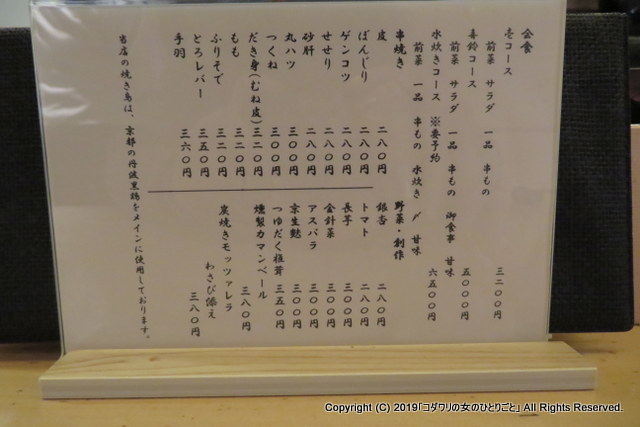 会食
壱コース
前菜 サラダ 一品 串もの 三二〇〇円
喜鈴コース
前菜 サラダ 一品 串もの 御食事 甘味 五〇〇〇円
水炊きコース ※要予約
前菜 一品 串もの 水炊き 〆 甘味 六五〇〇円
串焼き
皮 二八〇円
ぼんじり 二八〇円
ゲンコツ 二八〇円
せせり 二八〇円
砂肝 二八〇円
丸ハツ 三〇〇円
つくね 三〇〇円
だき身(むね皮) 三二〇円
もも 三二〇円
ふりそで 三二〇円
とろレバー 三五〇円
手羽 三六〇円
野菜・創作
銀杏 二八〇円
トマト 二八〇円
長芋 三〇〇円
金針菜 三〇〇円
アスパラ 三〇〇円
京生麩 三〇〇円
つゆだく椎茸 三五〇円
燻製カマンベール 三八〇円
炭焼きモッツァレラ
わさび添え 三八〇円
当店の焼き鳥は、京都の丹波黒鶏をメインに使用しております。
Copyright (C) 2019「コダワリの女のひとりごと」 All Rights Reserved.